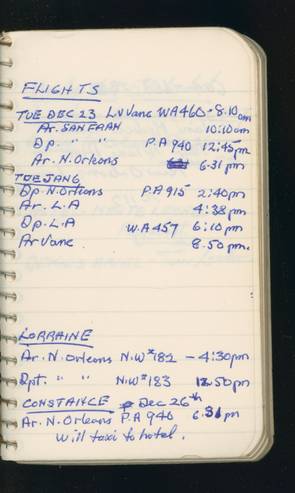 FLIGHTS
TUE DEC 23 Lv Vanc WA 460 - 8.10 am
Ar. SAN FRAN 10:10 am
Dp. " " P.A 940 12:45 pm
Ar. N. Orleans 6.31 pm
TUE JAN 6
Dp. N. Orleans P.A 915 2:40 pm
Ar. L.A 4:38 pm
Dp. L.A W.A 457 6:10 pm
Ar Vanc 8.50 pm.
LORRAINE
Ar. N. Orleans N.W # 182 - 4:30 pm
Dpt. " " N.W # 183 12.50 pm
CONSTANCE Dec 26th
Ar. N. Orleans P.A 940 6.31 pm
Will taxi to hotel.